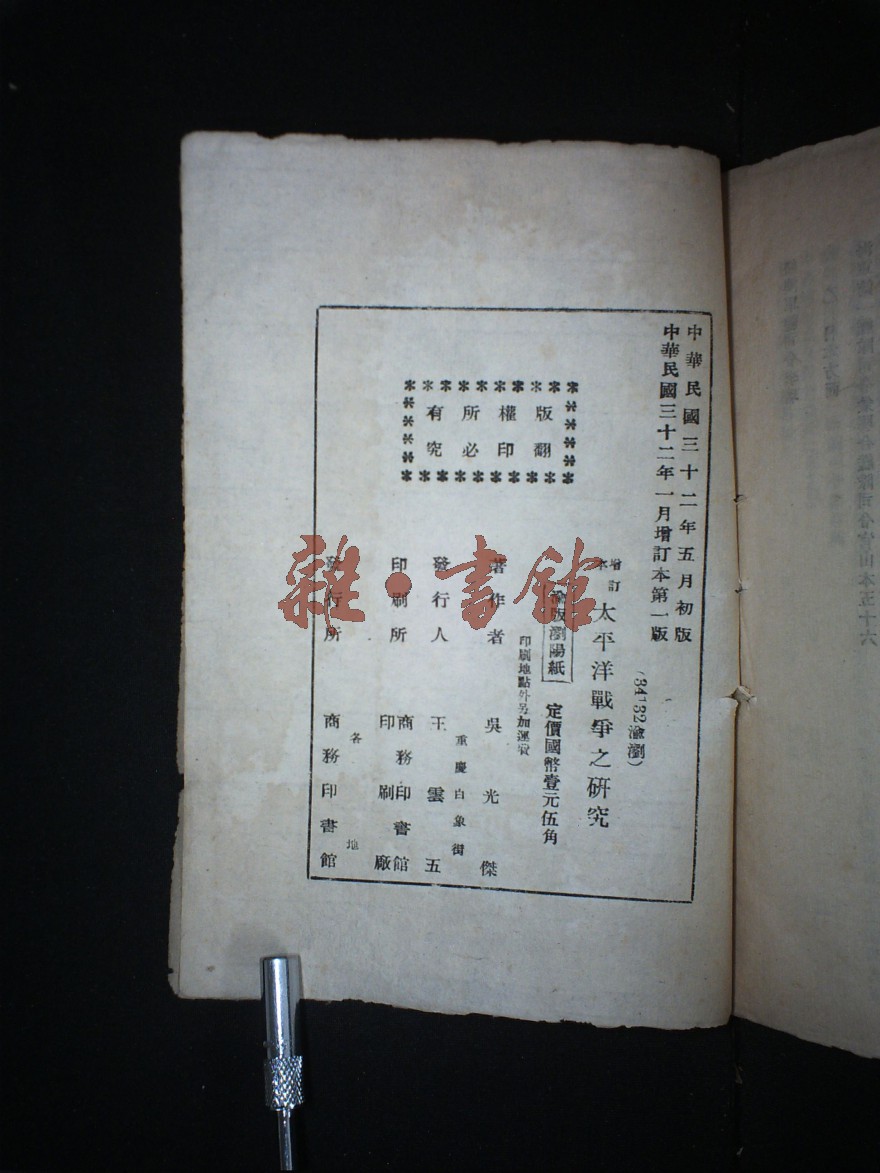 中華民國三十二年五月初版
中華民國三十二年一月增訂本第一版
(34132渝瀏)
增訂本 太平洋戰爭之研究
渝版瀏陽紙
定價國幣壹元伍角
印刷地點外另加運費
版權所有
翻印必究
著作者 吳光傑
重慶白象街
發行人 王雲五
印刷所 商務印書館印刷廠
各地
發行所 商務印書館
雜·書館